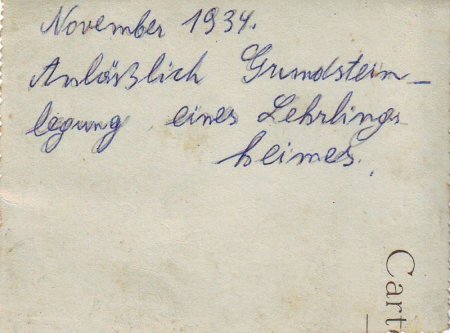 November 1934.
Anläßlich Grundstein-
legung eines Lehrlings
heimes.
Cart